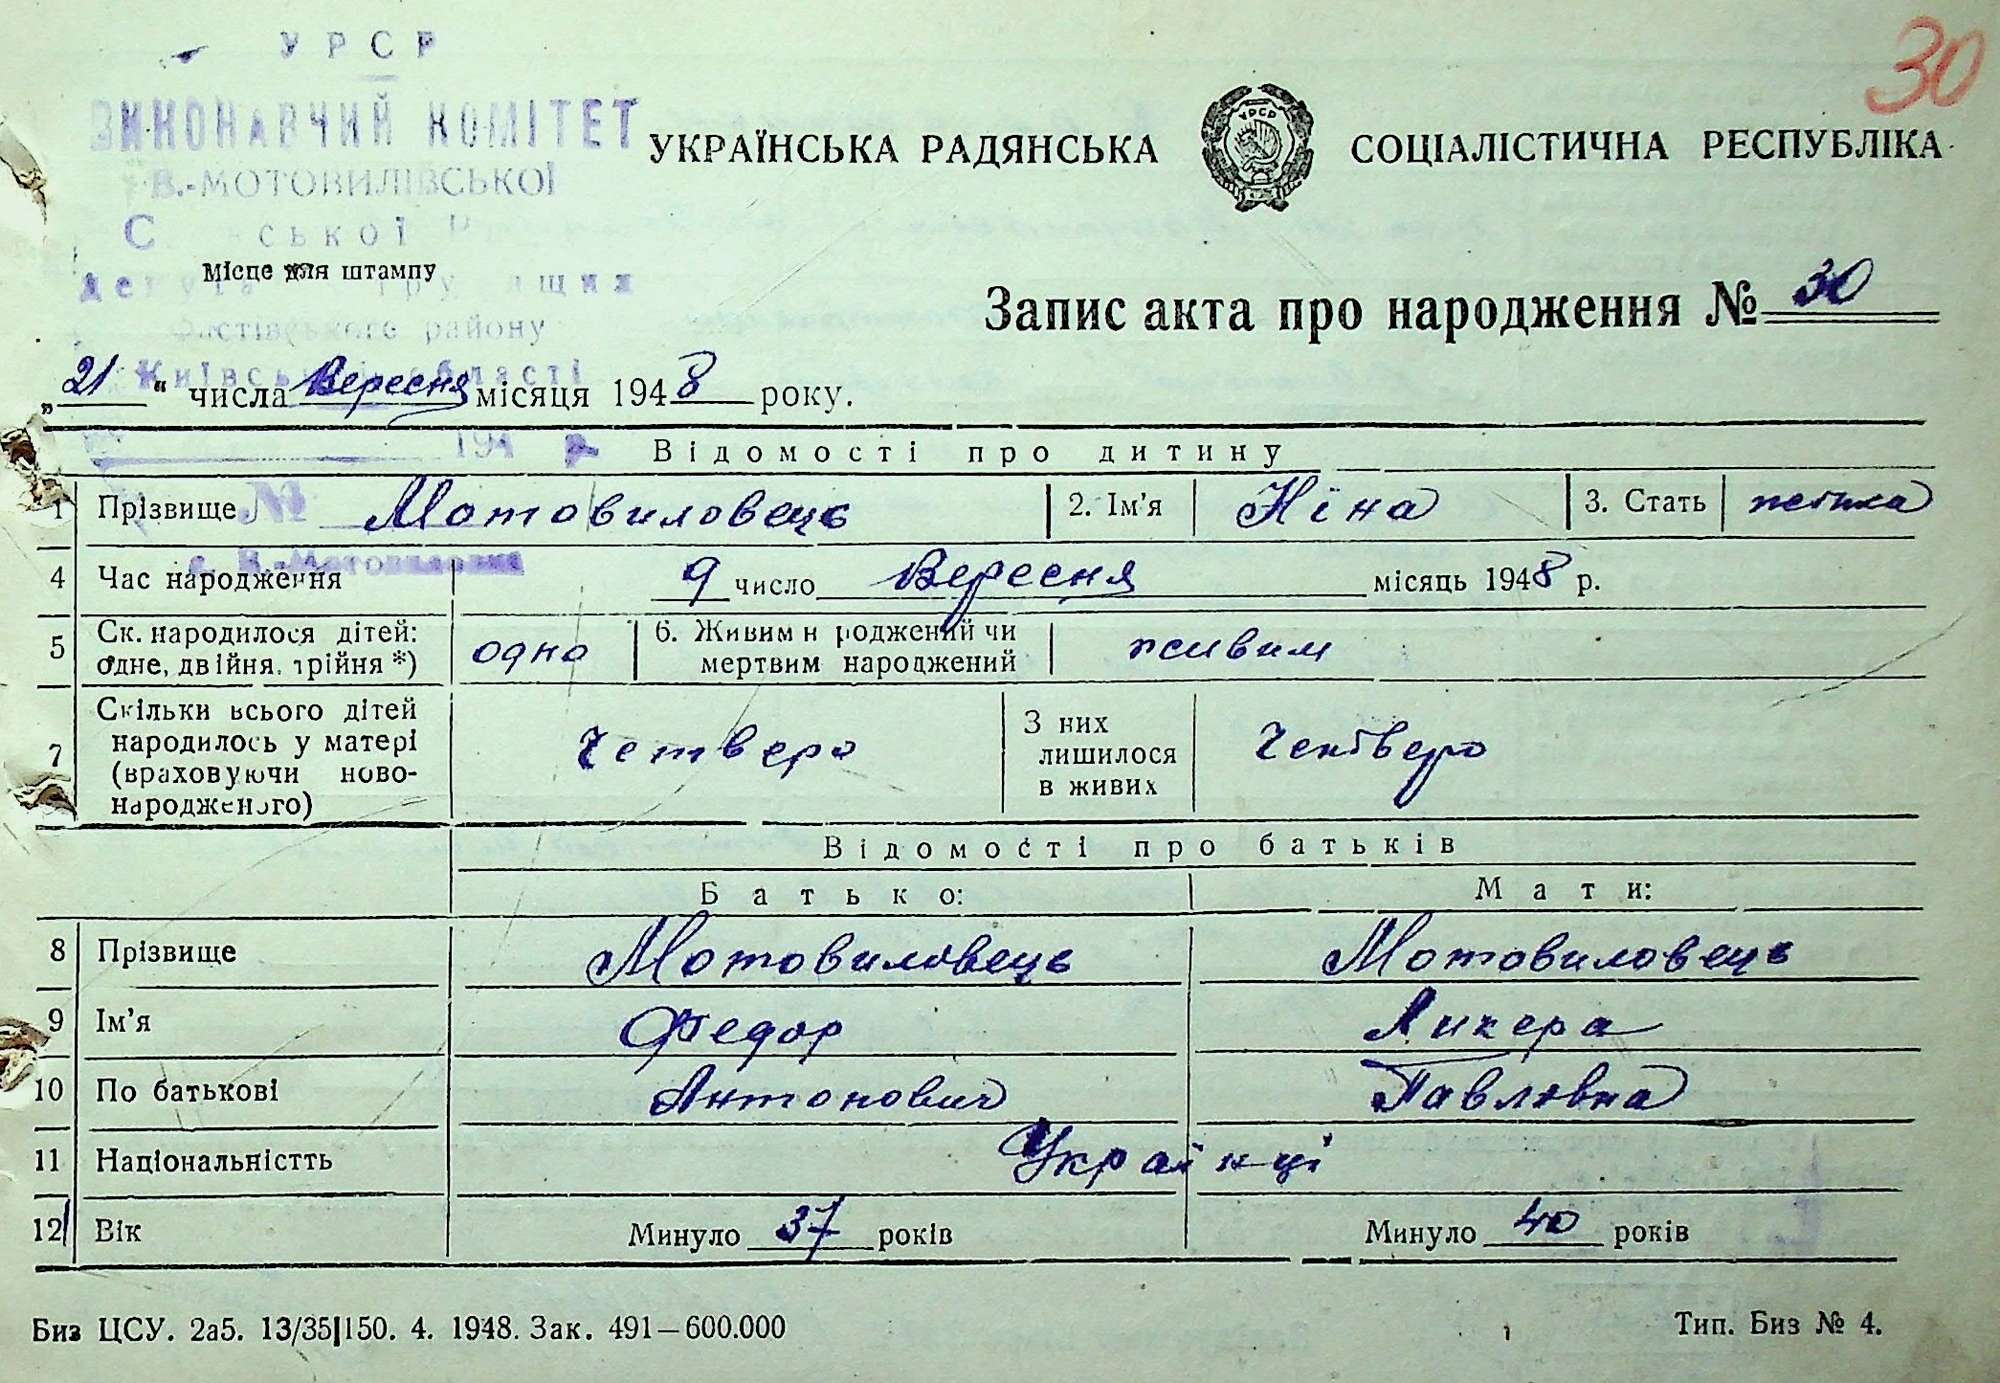 30
УРСР
ВИКОНАВЧИЙ КОМІТЕТ
В.-МОТОВИЛІВСЬКОЇ
УКРАЇНСЬКА РАДЯНСЬКА УРСР СОЦІАЛІСТИЧНА РЕСПУБЛІКА
Місце для штампу
Фастівського району
Київської області
Запис акта про народження № 30
„21“ числа Вересня місяця 1948 року.
194 р.
Відомості про дитину
1 Прізвище Мотовиловець 2. Ім'я Ніна 3. Стать
№
с. В.-Мотовиловка
4 Час народження 9 число Вересня місяць 1948 р.
5 Ск. народилося дітей: одне, двійня, трійня *) одно 6. Живим народжений чи мертвим народжений живим
7 Скільки всього дітей народилось у матері (враховуючи ново-народженого) Четверо З них лишилося в живих Четверо
Відомості про батьків
Батько: Мати:
8 Прізвище Мотовиловець Мотовиловець
9 Ім'я Федор Ликера
10 По батькові Антонович Павловна
11 Національністть Українці
12 Вік Минуло 37 років Минуло 40 років
Биз ЦСУ. 2а5. 13/35|150. 4. 1948. Зак. 491—600.000 Тип. Биз № 4.